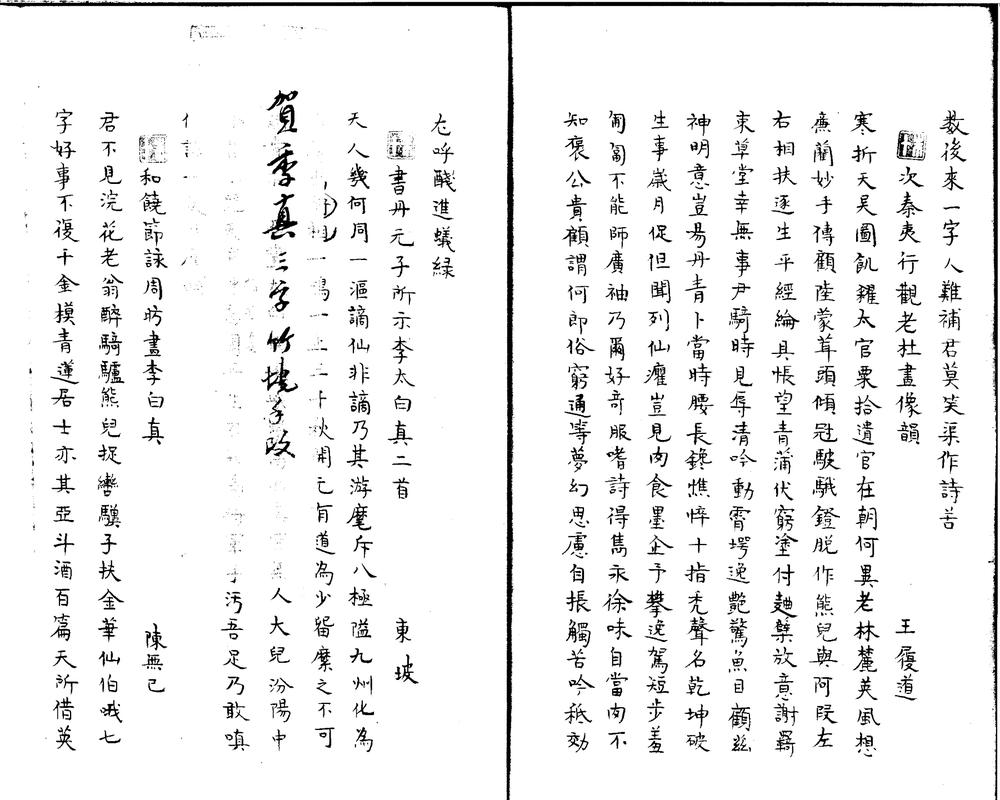 数後來一字人難補君莫笑渠作詩苦
次秦夷行觀老杜畫像韻 王履道
寒折天吴圖飢糴太官粟拾遺官在朝何異老林麓英風想
廉藺妙手傳顧陸蒙茸頭傾冠駊騀鐙脱作熊兒與阿段左
右相扶逐生平經綸具悵望青蒲伏窮塗付麯糵放意謝羈
束草堂幸無事尹騎時見辱清吟動霄堮逸艷驚魚目顧兹
神明意豈易丹青卜當時腰長鑱憔悴十指禿聲名乾坤破
生事歲月促但聞列仙癯豈見肉食墨企予攀逸駕短步羞
匍匐不能師廣袖乃爾好奇服嗜詩得雋永徐味自當肉不
知褒公貴顧謂何郎俗窮通等夢幻思慮自振觸苦吟秪効
尤呼醆進蟻緑
書丹元子所示李太白真二首 東坡
天人幾何同一漚謫仙非謫乃其游麾斥八極隘九州化為
一鳴一止三千秋開元有道為少留縻之不可
賀季真三字竹垞手改
人大兒汾陽中
手污吾足乃敢嗔
和饒節詠周昉畫李白真 陳無己
君不見浣花老翁醉騎驢熊兒捉轡驥子扶金華仙伯哦七
字好事不復千金摸青蓮居士亦其亞斗酒百篇天所借英